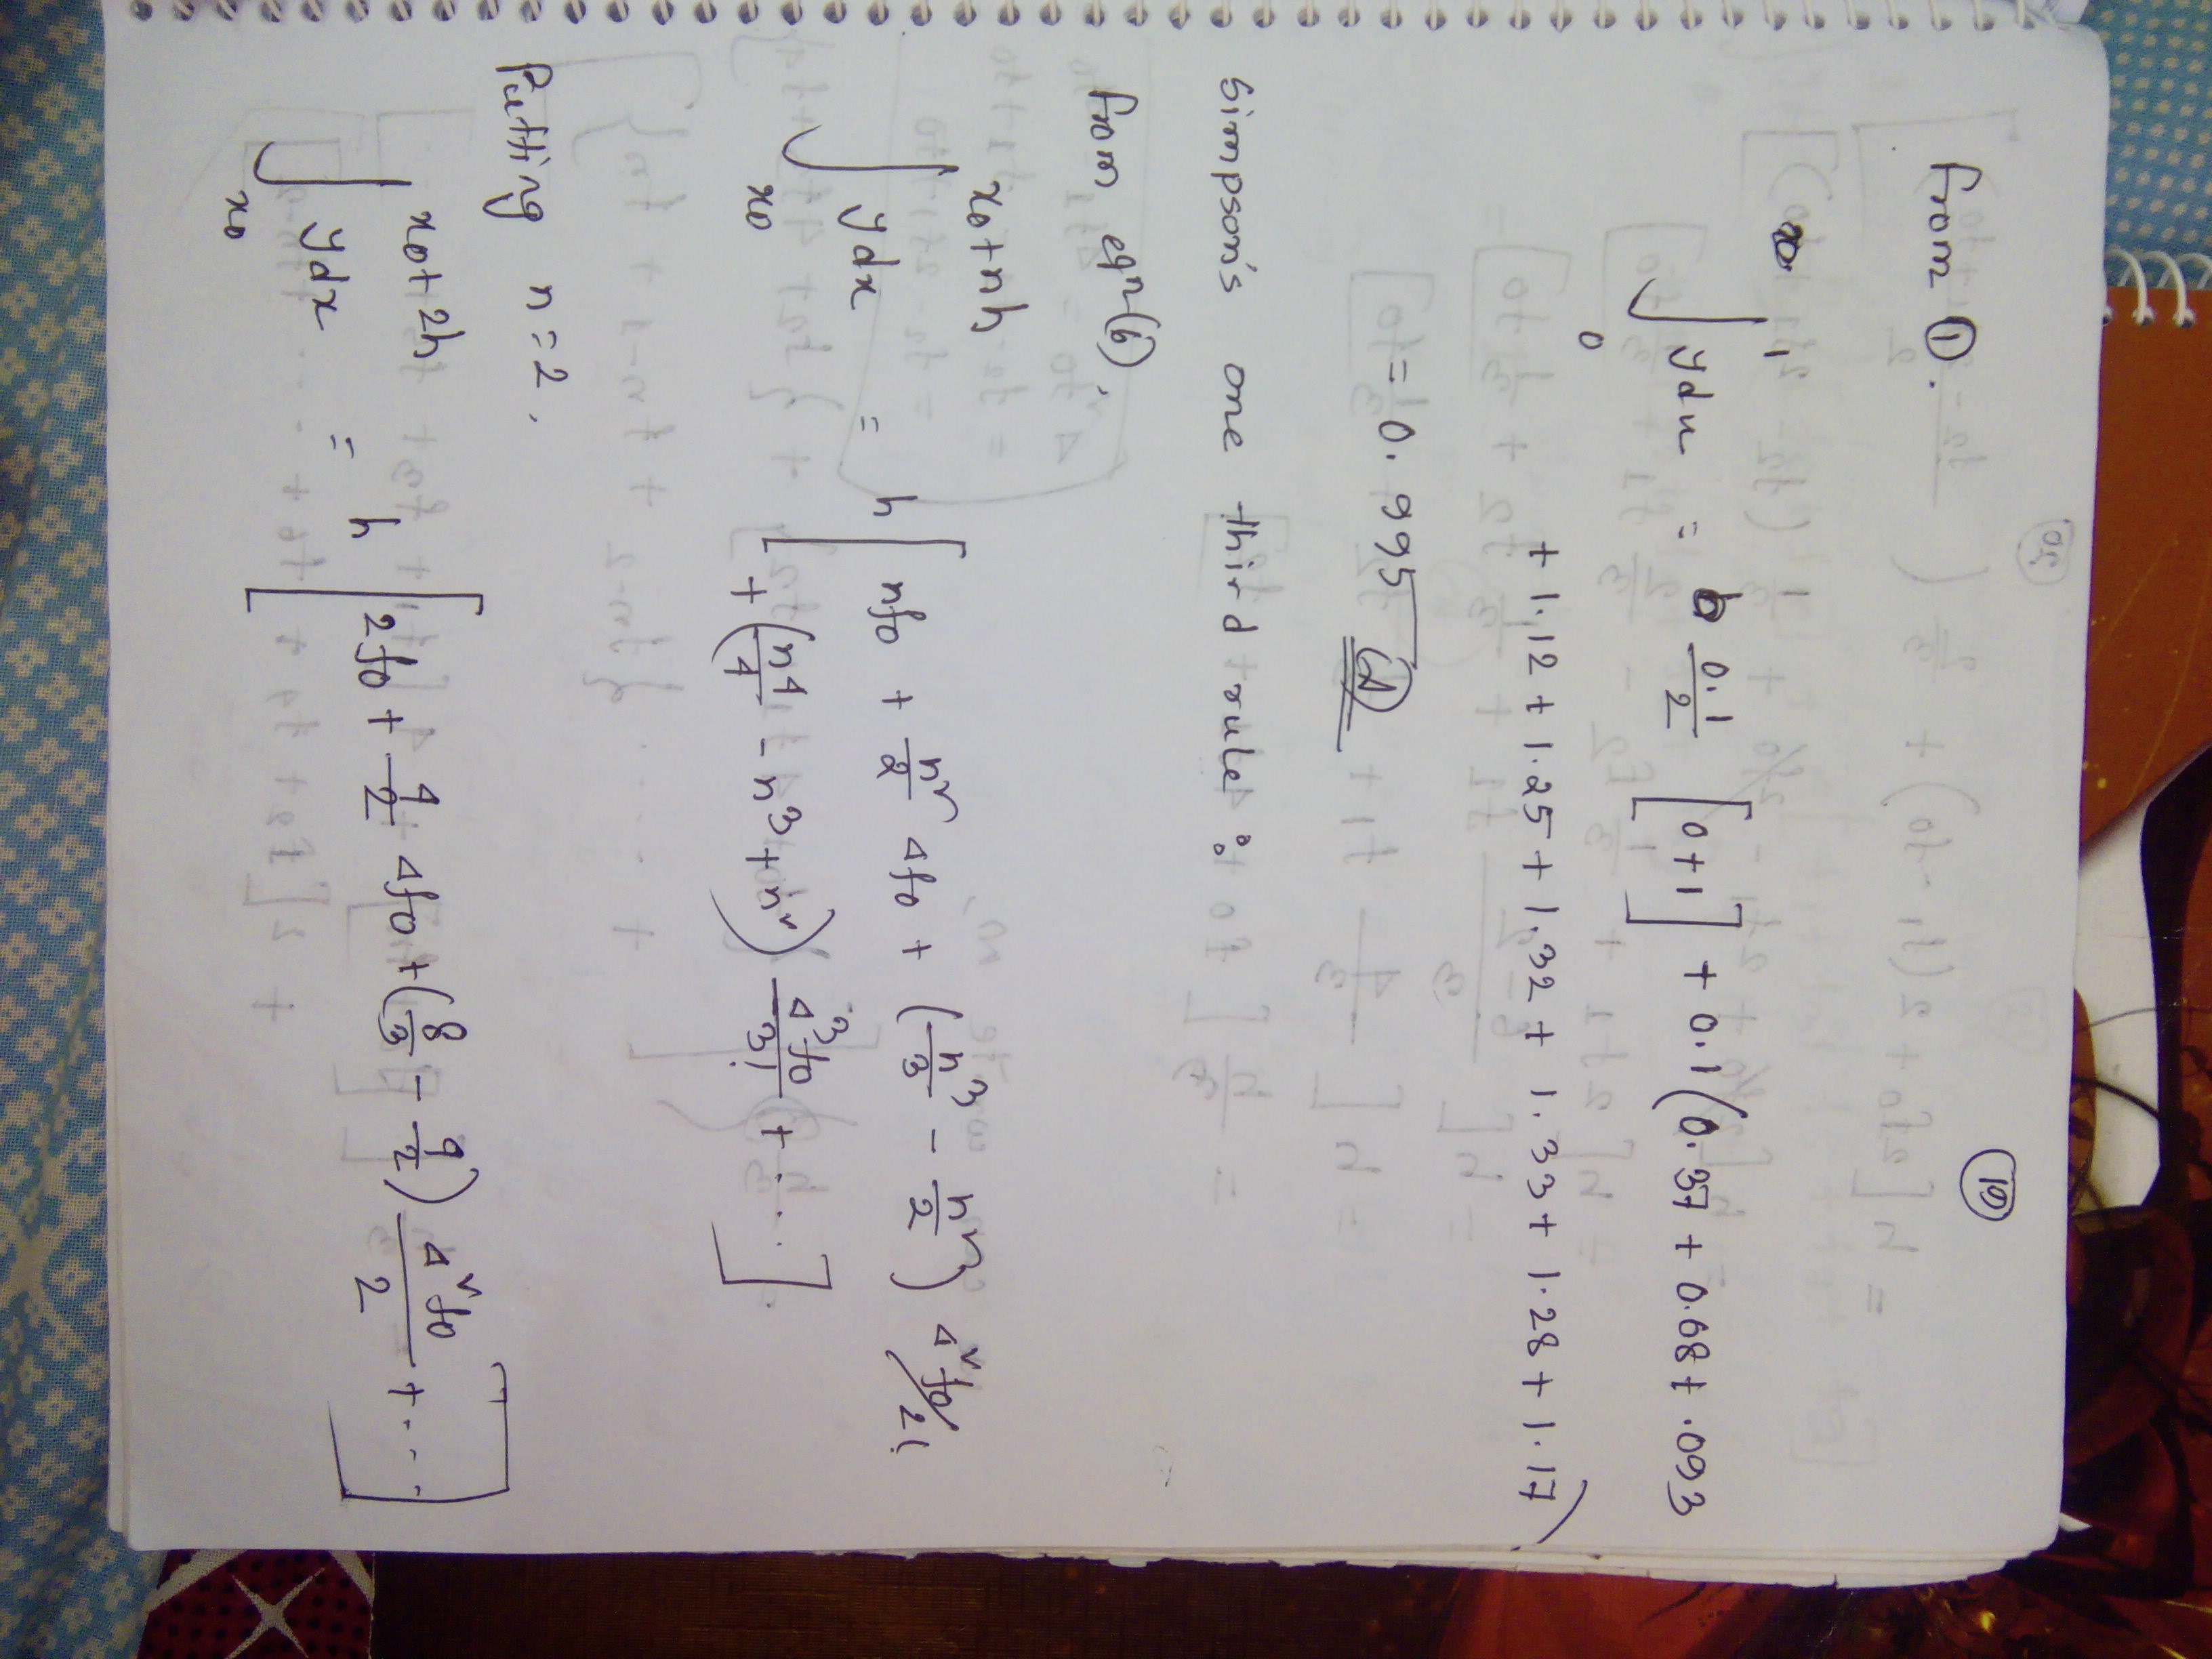 (10)
From ①.
∫₀¹ ydx = 0.1/2 [0+1] + 0.1(0.37 + 0.68 + .093
+ 1.12 + 1.25 + 1.32 + 1.33 + 1.28 + 1.17)
= 0.995 (A)
Simpson's one third rule:
From eqn (6),
∫_{x0}^{x0+nh} ydx = h [nf0 + n²/2 Δf0 + (n³/3 - n²/2) Δ²f0/2!
+ (n⁴/4 - n³ + n²) Δ³f0/3! + ....]
Putting n=2,
∫_{x0}^{x0+2h} ydx = h [2f0 + 4/2 Δf0 + (8/3 - 4/2) Δ²f0/2 + ...]